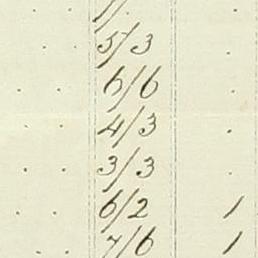 5/3 .
6/6
4/3
3/3 .
6/2 1
7/6 1